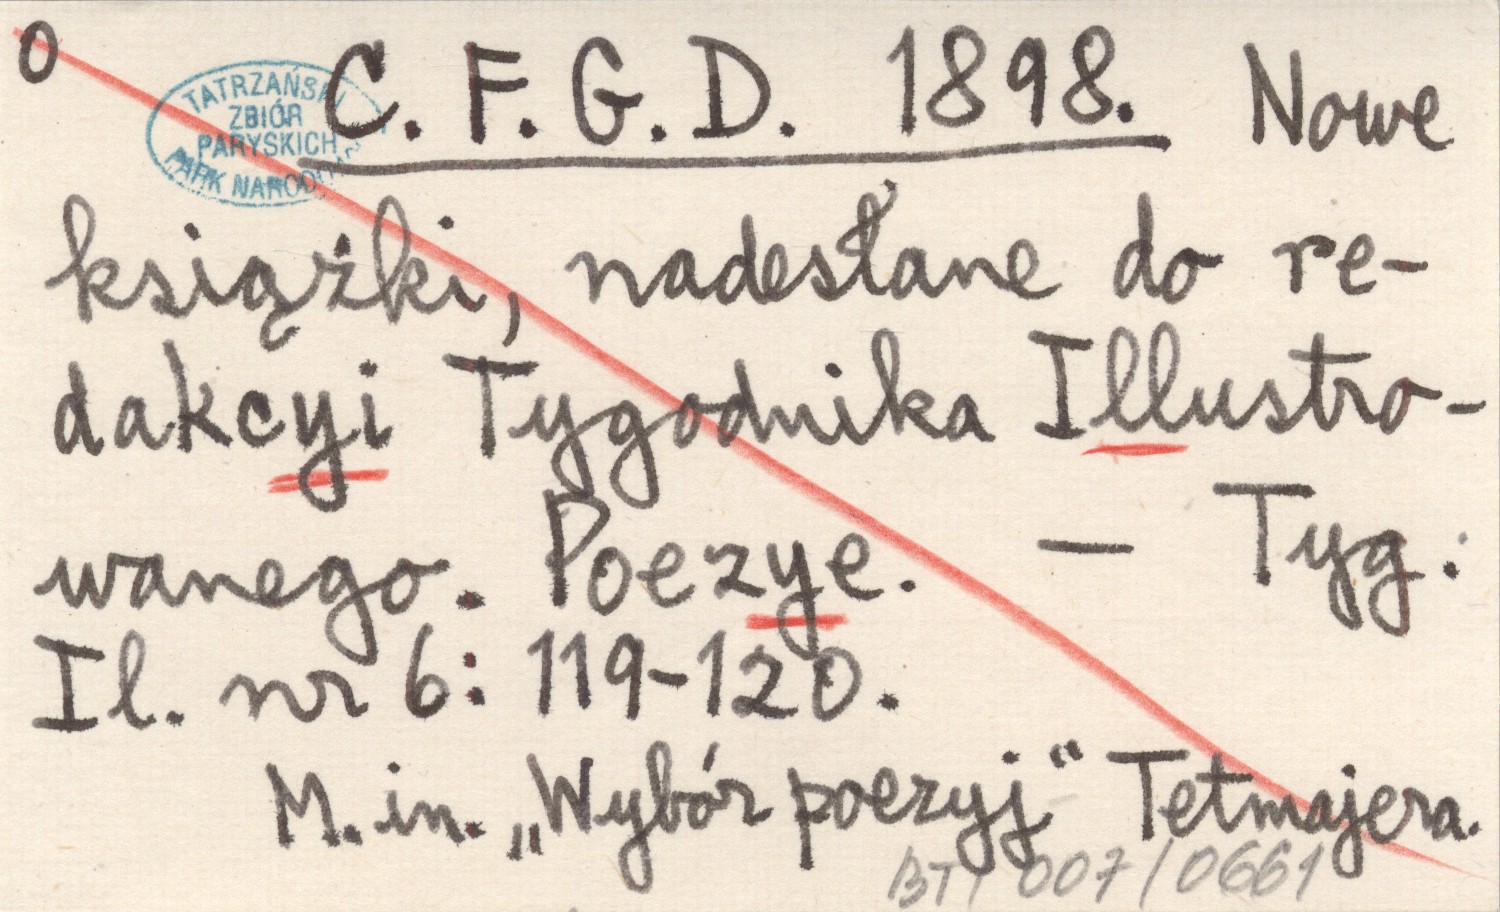 o C. F. G. D. 1898. Nowe
TATRZAŃSKI
ZBIÓR
PARYSKICH
PARK NARODOWY
książki, nadesłane do re-
dakcyi Tygodnika Illustro-
wanego. Poezye. — Tyg.
Il. nr 6: 119-120.
M. in. „Wybór poezyj“ Tetmajera.
BT/007/0661